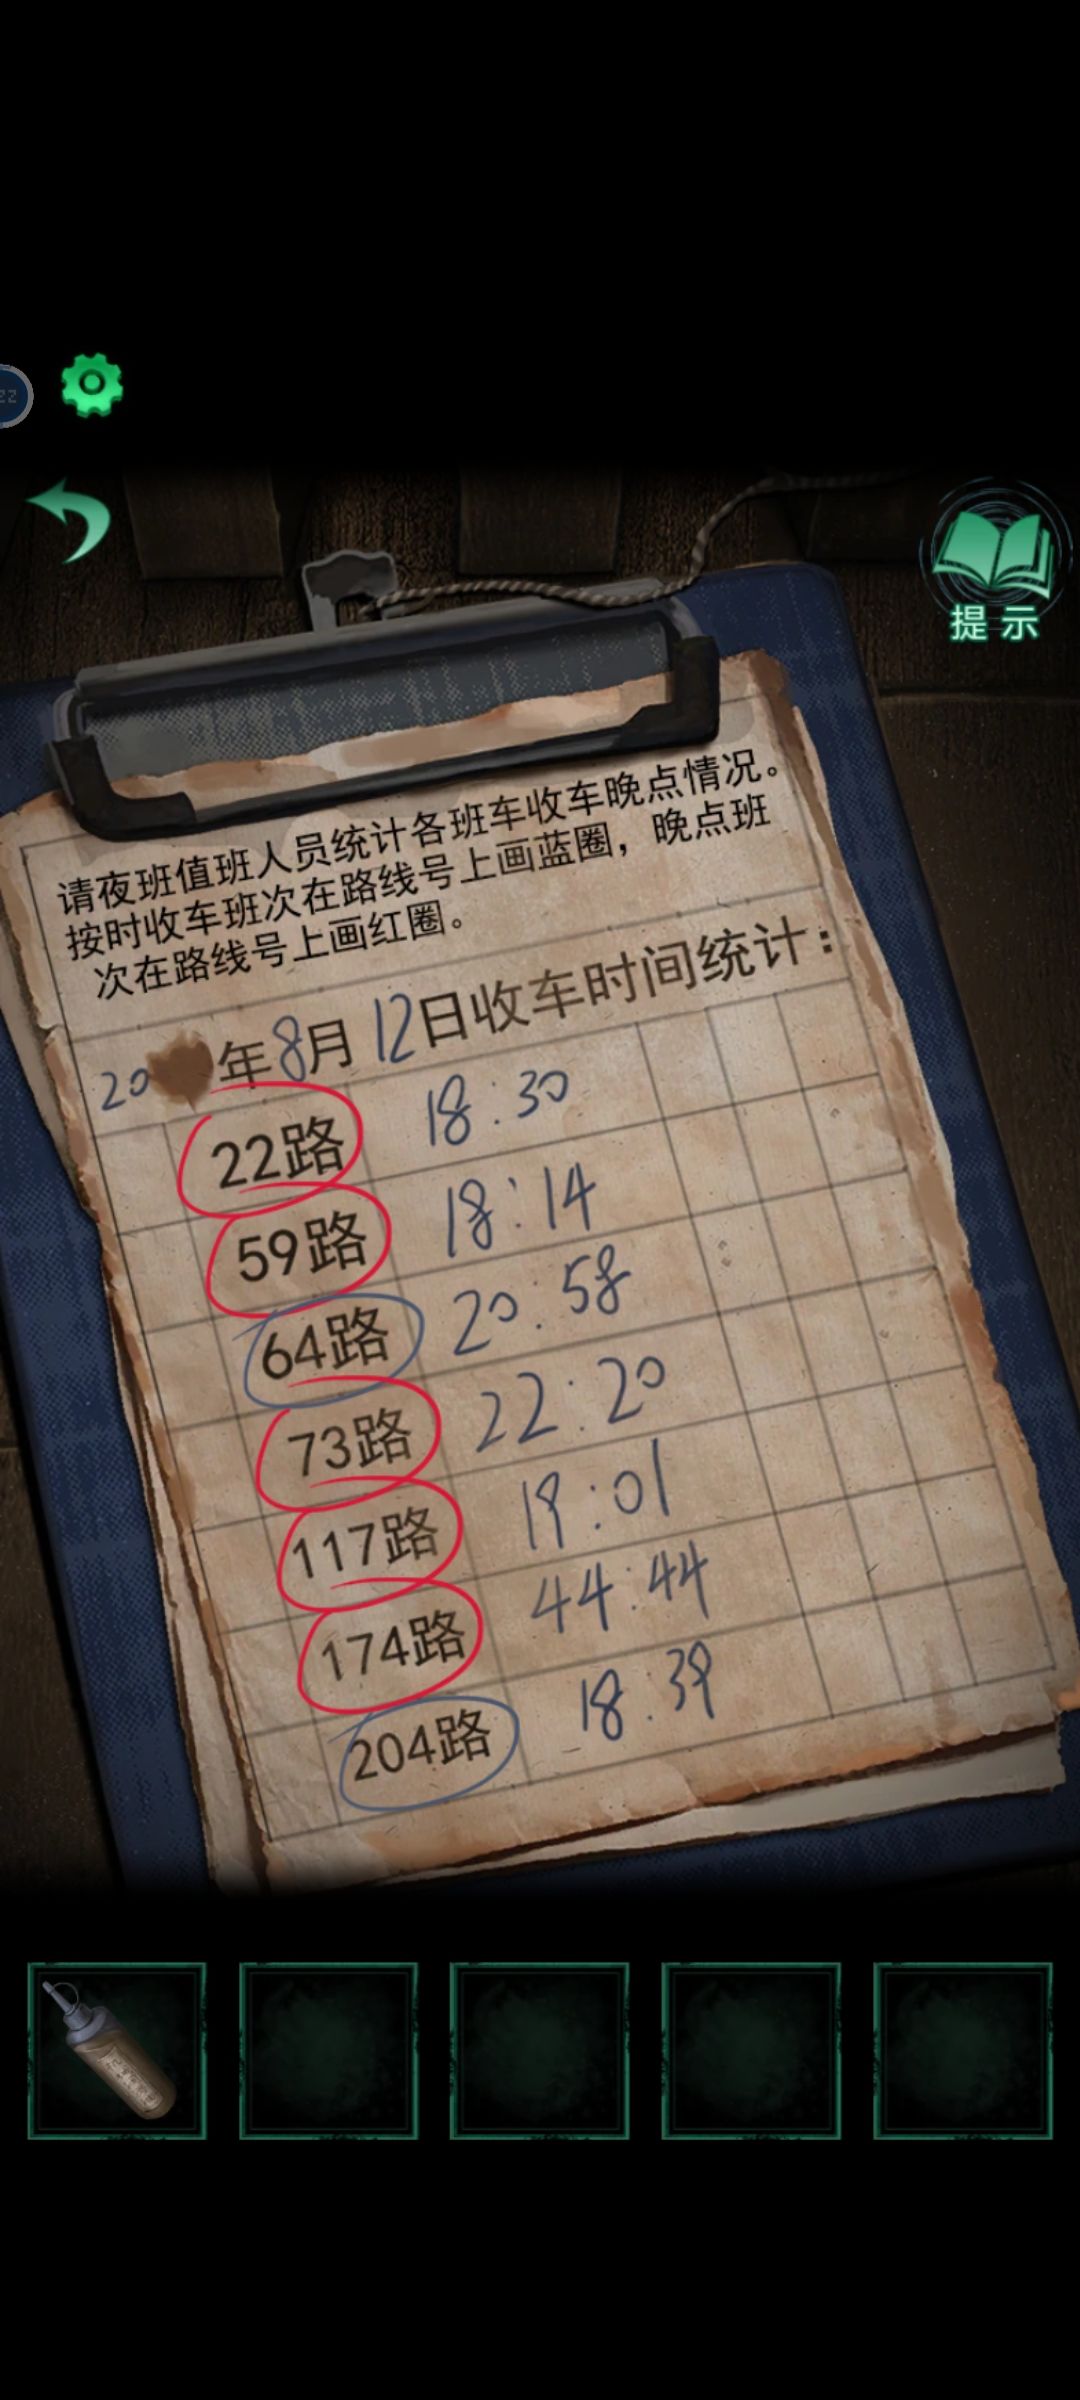 zz
提示
请夜班值班人员统计各班车收车晚点情况。
按时收车班次在路线号上画蓝圈，晚点班
次在路线号上画红圈。
20 年8月12日收车时间统计：
22路 18:30
59路 18:14
64路 20:58
73路 22:20
117路 19:01
174路 44:44
204路 18:39